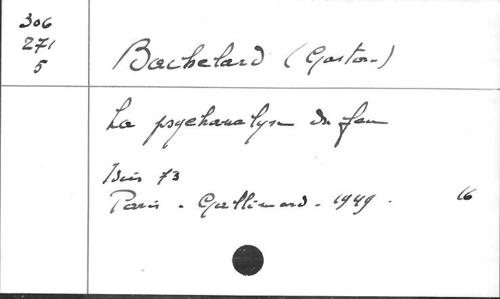 306
271
5
Bachelard (Gaston)
La psychanalyse du feu
73
Paris - Gallimard - 1949.
16